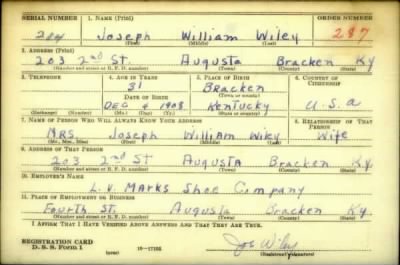 SERIAL NUMBER 1. NAME (Print) ORDER NUMBER
204 Joseph William Wiley 287
(First) (Middle) (Last)
2. ADDRESS (Print)
203 2nd St. Augusta Bracken Ky
(Number and street or R. F. D. number) (Town) (County) (State)
3. TELEPHONE 4. AGE IN YEARS 5. PLACE OF BIRTH 6. COUNTRY OF CITIZENSHIP
31 Bracken
(Town or county)
DATE OF BIRTH
DEC 4 1908 Kentucky U.S.a
(Exchange) (Number) (Mo.) (Day) (Yr.) (State or country)
7. NAME OF PERSON WHO WILL ALWAYS KNOW YOUR ADDRESS 8. RELATIONSHIP OF THAT PERSON
MRS Joseph William Wiley Wife
(Mr., Mrs., Miss) (First) (Middle) (Last)
9. ADDRESS OF THAT PERSON
203 2nd St Augusta Bracken Ky
(Number and street or R. F. D. number) (Town) (County) (State)
10. EMPLOYER'S NAME
L.V. Marks Shoe Company
11. PLACE OF EMPLOYMENT OR BUSINESS
Fourth St. Augusta Bracken Ky
(Number and street or R. F. D. number) (Town) (County) (State)
I AFFIRM THAT I HAVE VERIFIED ABOVE ANSWERS AND THAT THEY ARE TRUE.
REGISTRATION CARD
D. S. S. Form 1 (over) 16—17105 Jos Wiley
(Registrant's signature)